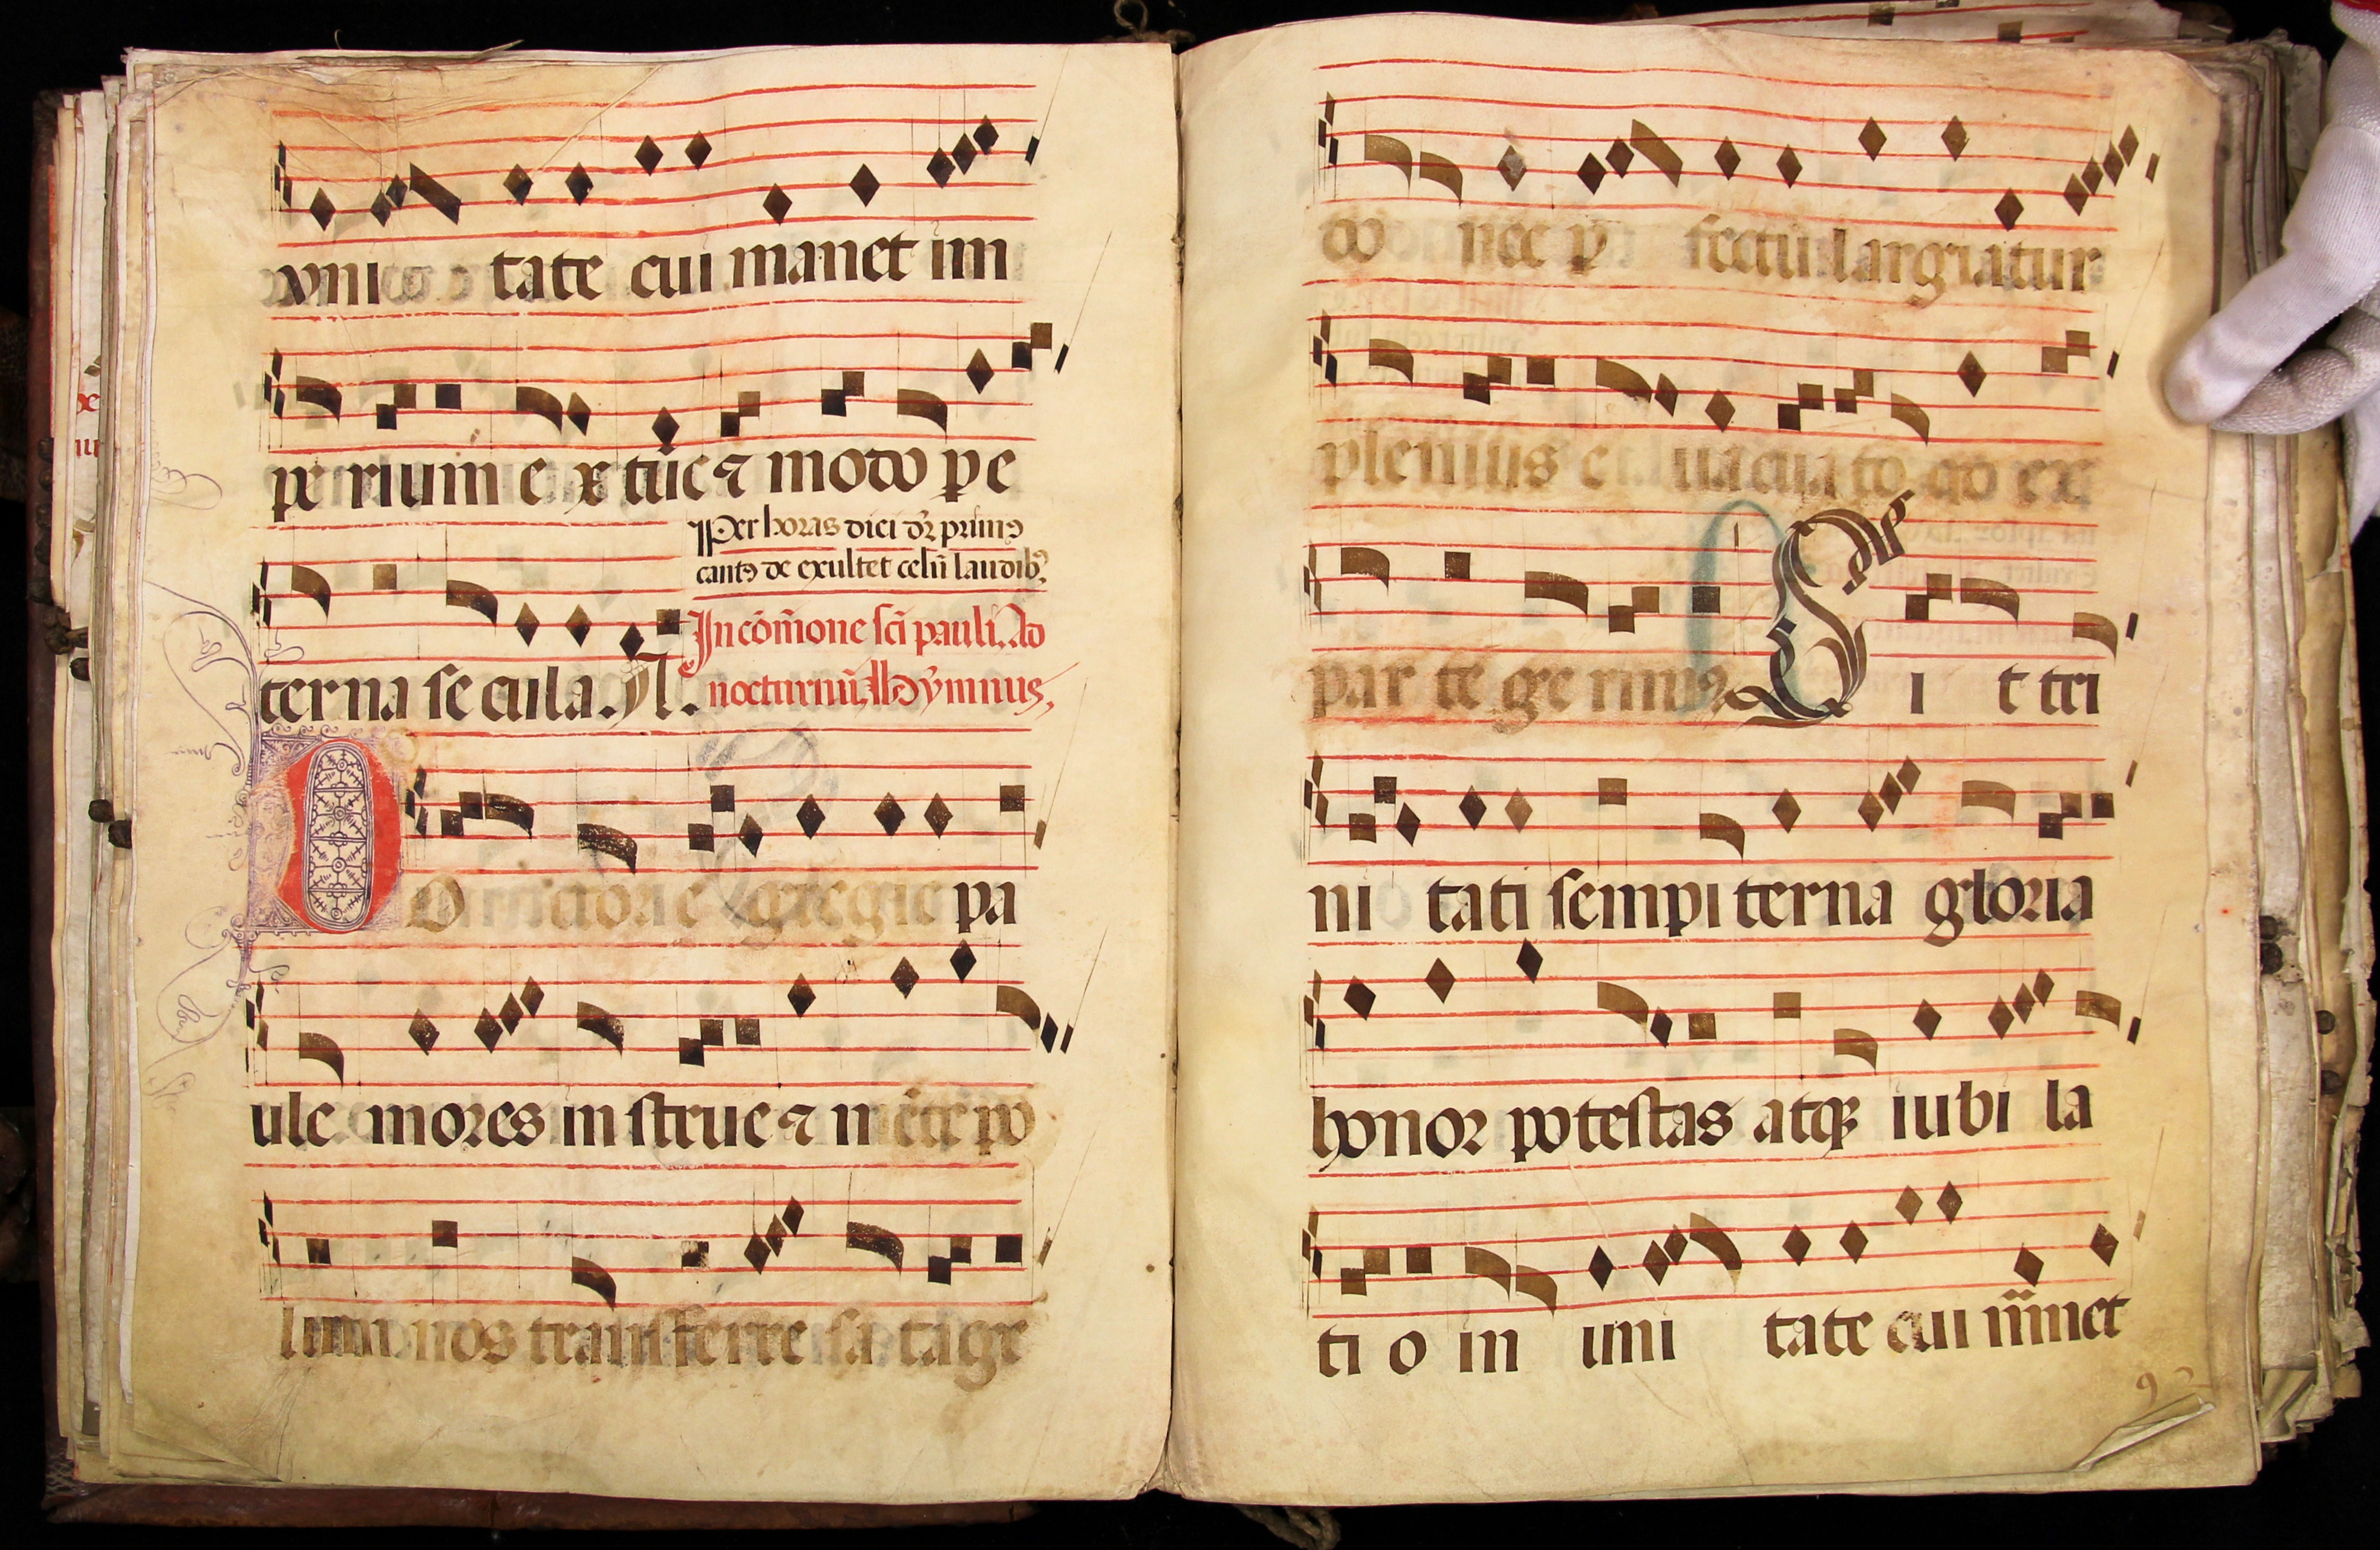 vni tate cui manet im
pe rium e x tūc ⁊ modo ꝑ e
Per horas dici dr̄ primꝰ
cantꝰ de exultet celū laudibꝫ
ter na se cula.
In cōm̄one sc̄i pauli. Ad
nocturnū. Hẏmnus.
D Octor e gregie pa
ule mores in strue ⁊ m ēte po
lum nos transferre sa tage
do nec ꝑ fectū largiatur
plenius e uacua to qō ex
par te ge rimꝰ S i t tri
ni tati sempi terna gloria
honor potestas atqꝫ iubi la
ti o in uni tate cui manet